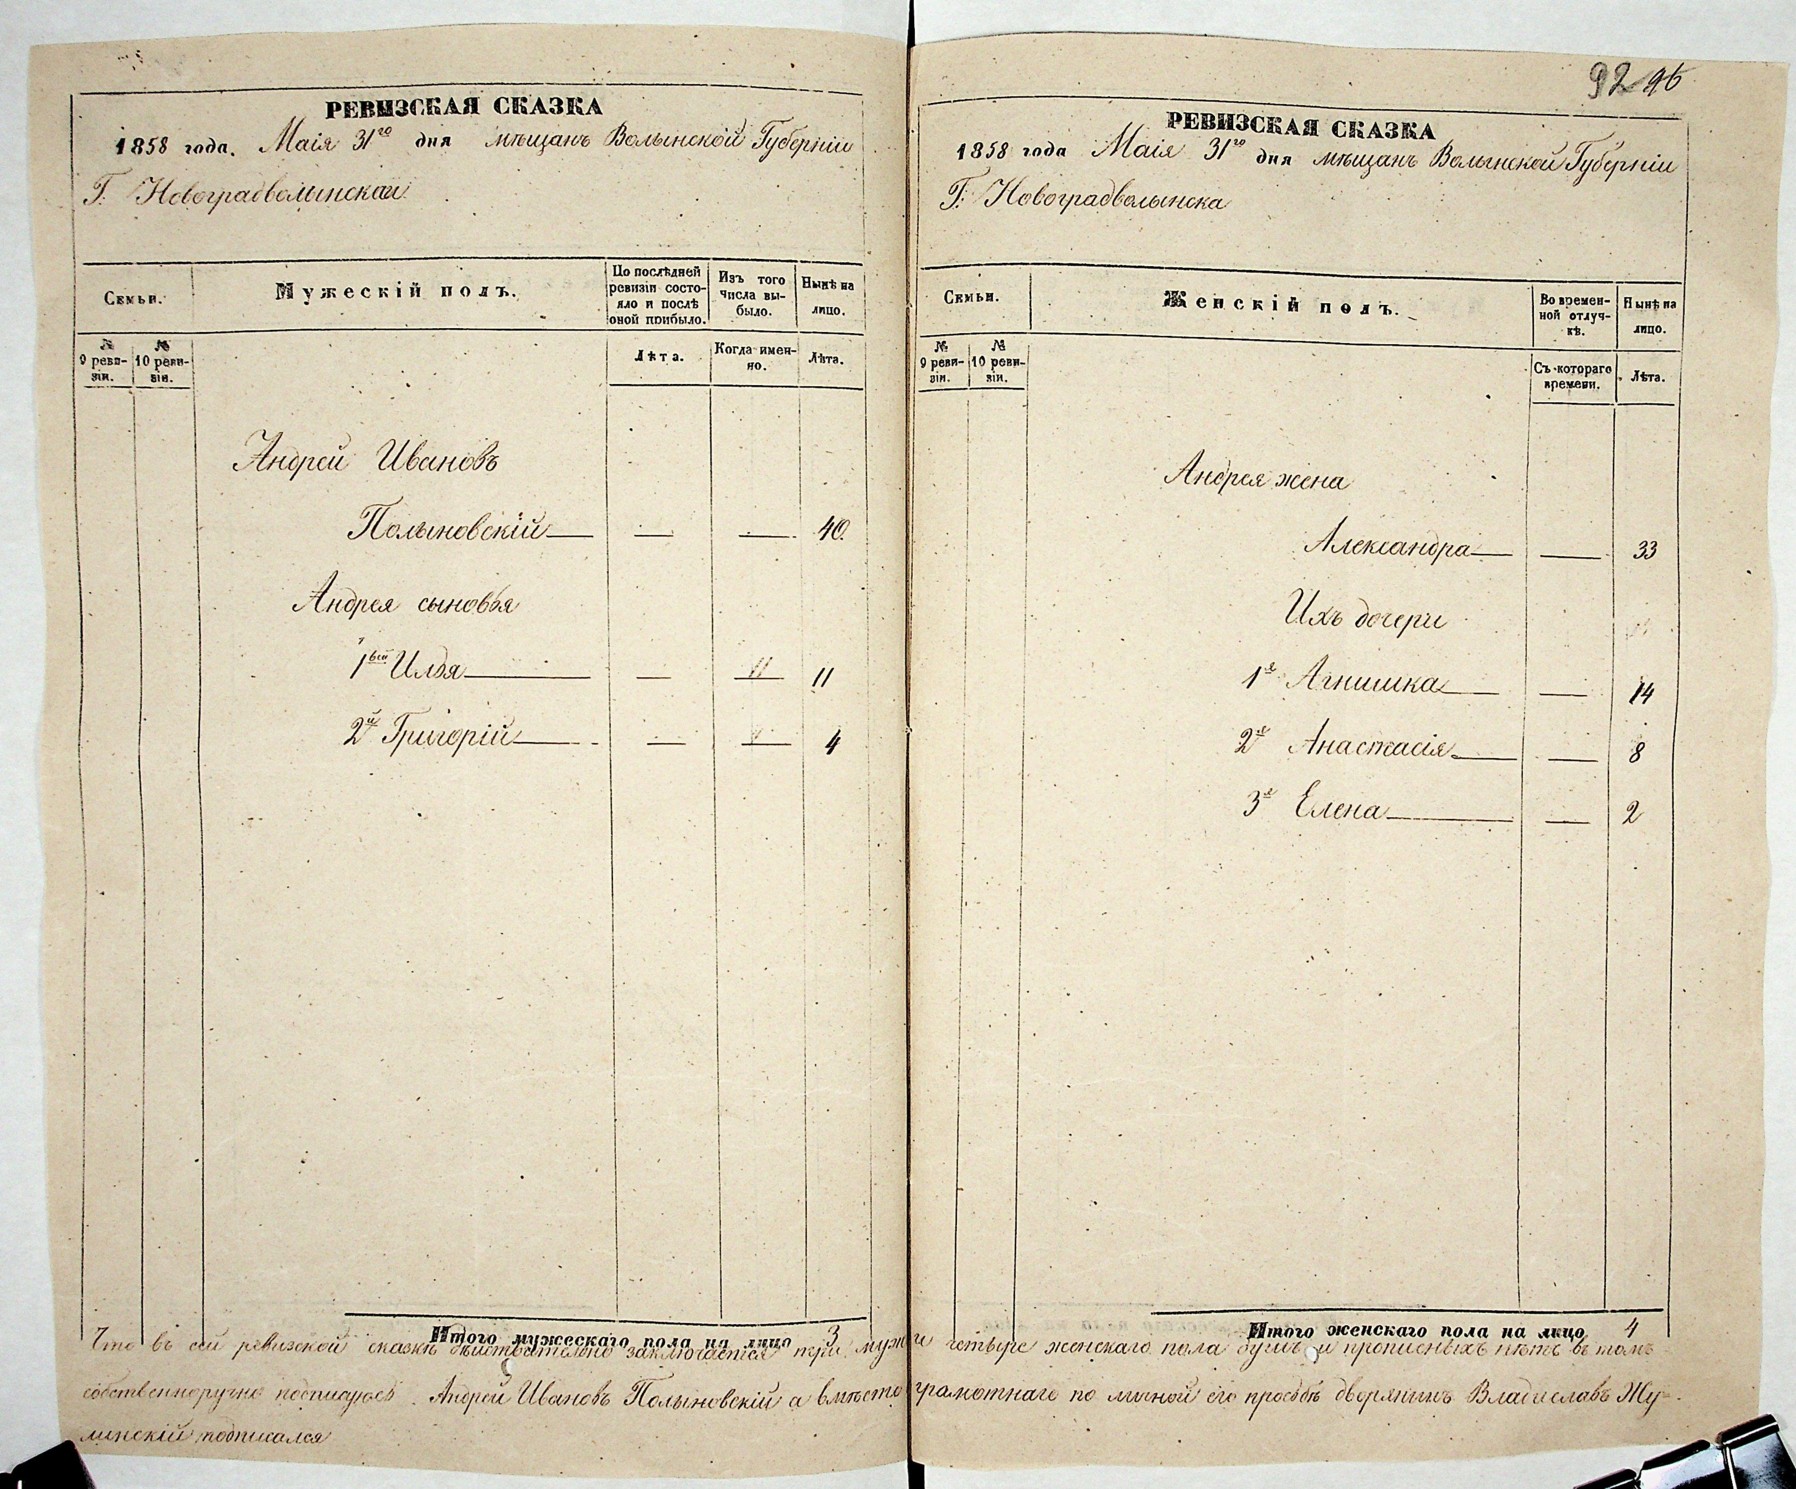 РЕВИЗСКАЯ СКАЗКА
1858 года. Маія 31го дня мѣщанъ Волынской Губерніи
Г. Новоградволынска
Семьи.
Мужескій полъ.
По послѣдней ревизіи состояло и послѣ оной прибыло.
Изъ того числа выбыло.
Нынѣ на лицо.
№ 9 ревизіи.
№ 10 ревизіи.
Лѣта.
Когда именно.
Лѣта.
Андрей Ивановъ
Полыновскій — — — 40
Андрея сыновья
1ый Илья — — — 11
2й Григорій — — — 4
Итого мужескаго пола на лицо 3
92 96
РЕВИЗСКАЯ СКАЗКА
1858 года Маія 31го дня мѣщанъ Волынской Губерніи
Г: Новоградволынска
Семьи.
Женскій полъ.
Во временной отлучкѣ.
Нынѣ на лицо.
№ 9 ревизіи.
№ 10 ревизіи.
Съ котораго времени.
Лѣта.
Андрея жена
Александра — — 33
Ихъ дочери
1я Агнишка — — 14
2я Анастасія — — 8
3я Елена — — 2
Итого женскаго пола на лицо 4
Что въ сей ревизской сказкѣ дѣйствительно заключается три муж и четыре женскаго пола душъ и прописныхъ нѣтъ въ томъ
собственноручно подписуюсь Андрей Ивановъ Полыновскій а вмѣсто грамотнаго по личной его просьбѣ дворянинъ Владиславъ Жу-
линскій подписался